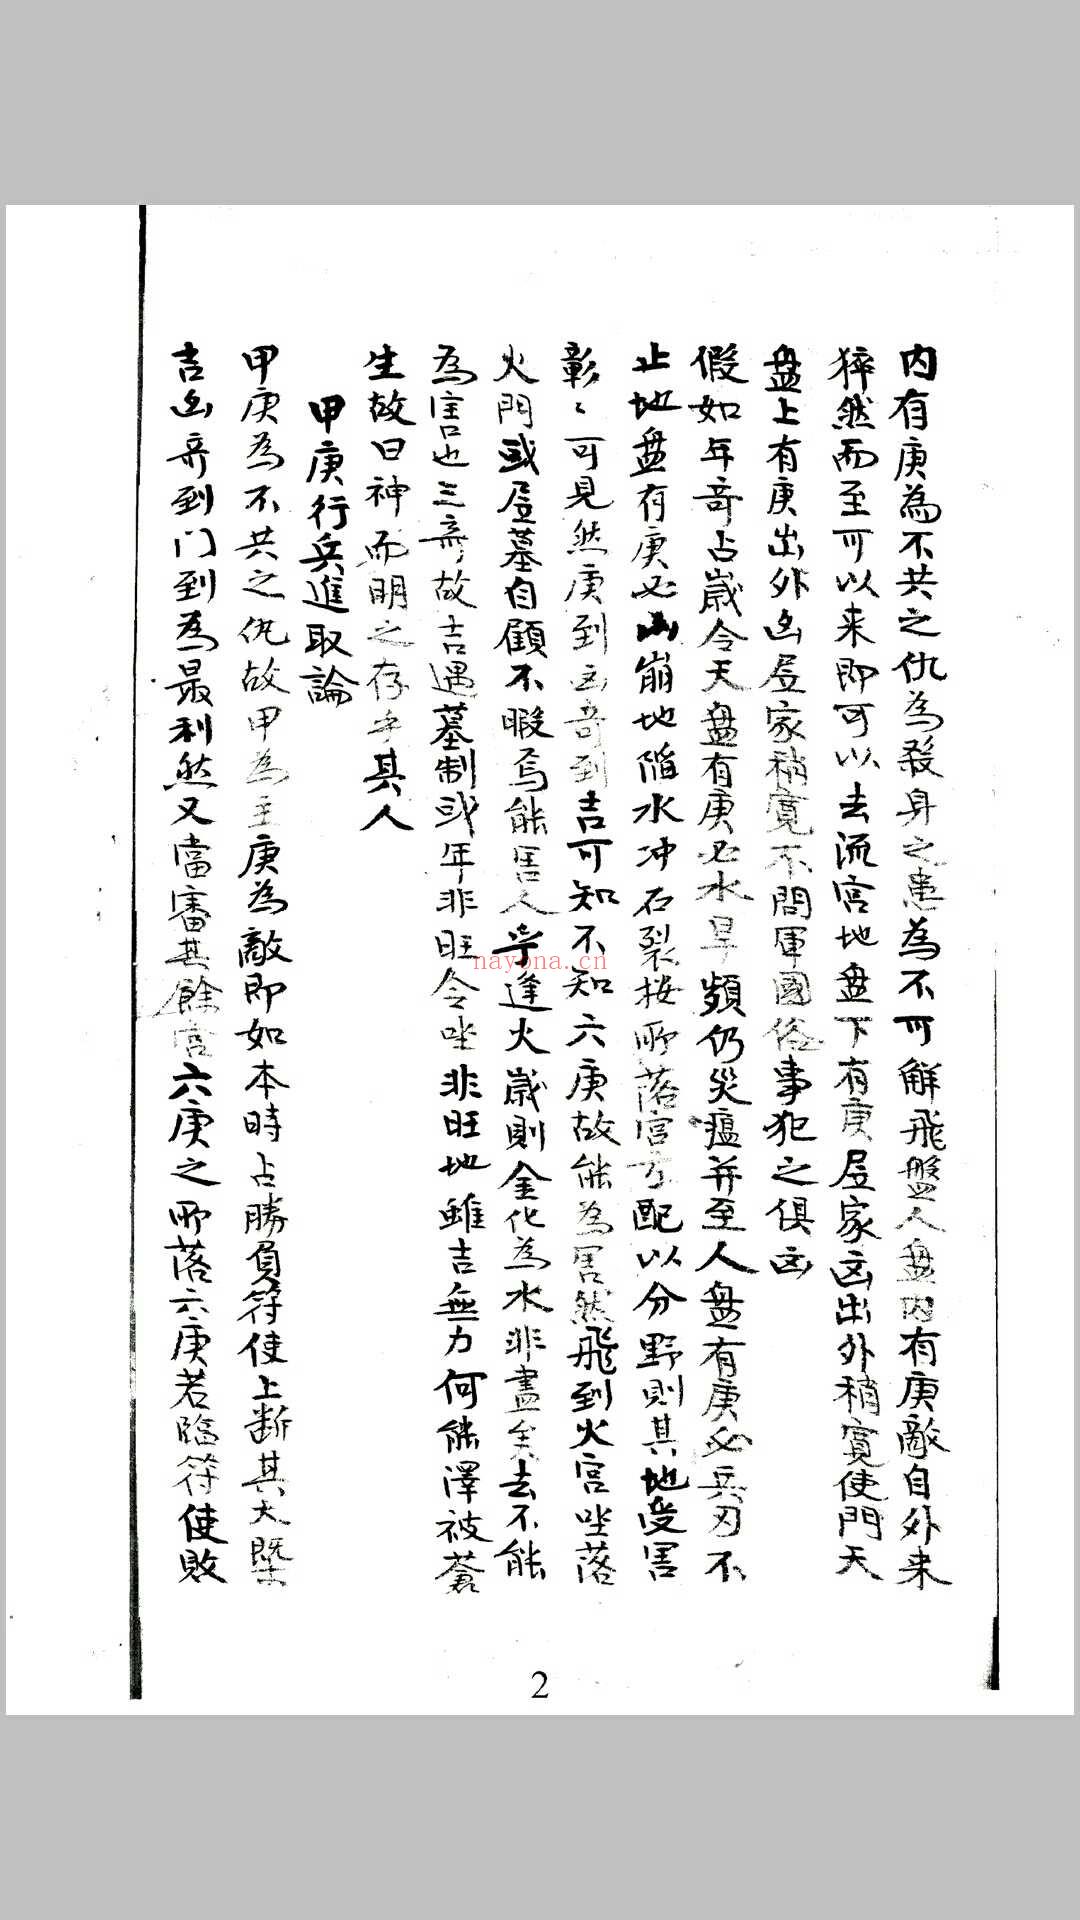 内有庚為不共之仇為殺身之患為不可解飛盤人盘内有庚敵自外来
猝然而至可以来即可以去流宫地盘下有庚居家凶出外稍寬使門天
盘上有庚出外凶居家稍寛不問軍國俗事犯之俱凶
假如年竒占嵗令天盘有庚必水旱頻仍災瘟并至人盘有庚必兵刃不
止地盘有庚必山崩地陷水冲石裂按所落宫方配以分野則其地受害
彰〻可見然庚到凶竒到吉可知不知六庚故能為害然飛到火宫坐落
火門或居墓自顧不暇焉能害人乎逢火嵗則金化為水非盡矣去不能
為害也三竒故吉遇墓制或年非旺令坐非旺地雖吉無力何能澤被蒼
生故曰神而明之存乎其人
甲庚行兵進取論
甲庚為不共之仇故甲為主庚為敵即如本時占勝負符使上断其大槩
吉凶竒到门到為最利然又當審其餘宫六庚之所落六庚若臨符使敗
nayona.cn
2